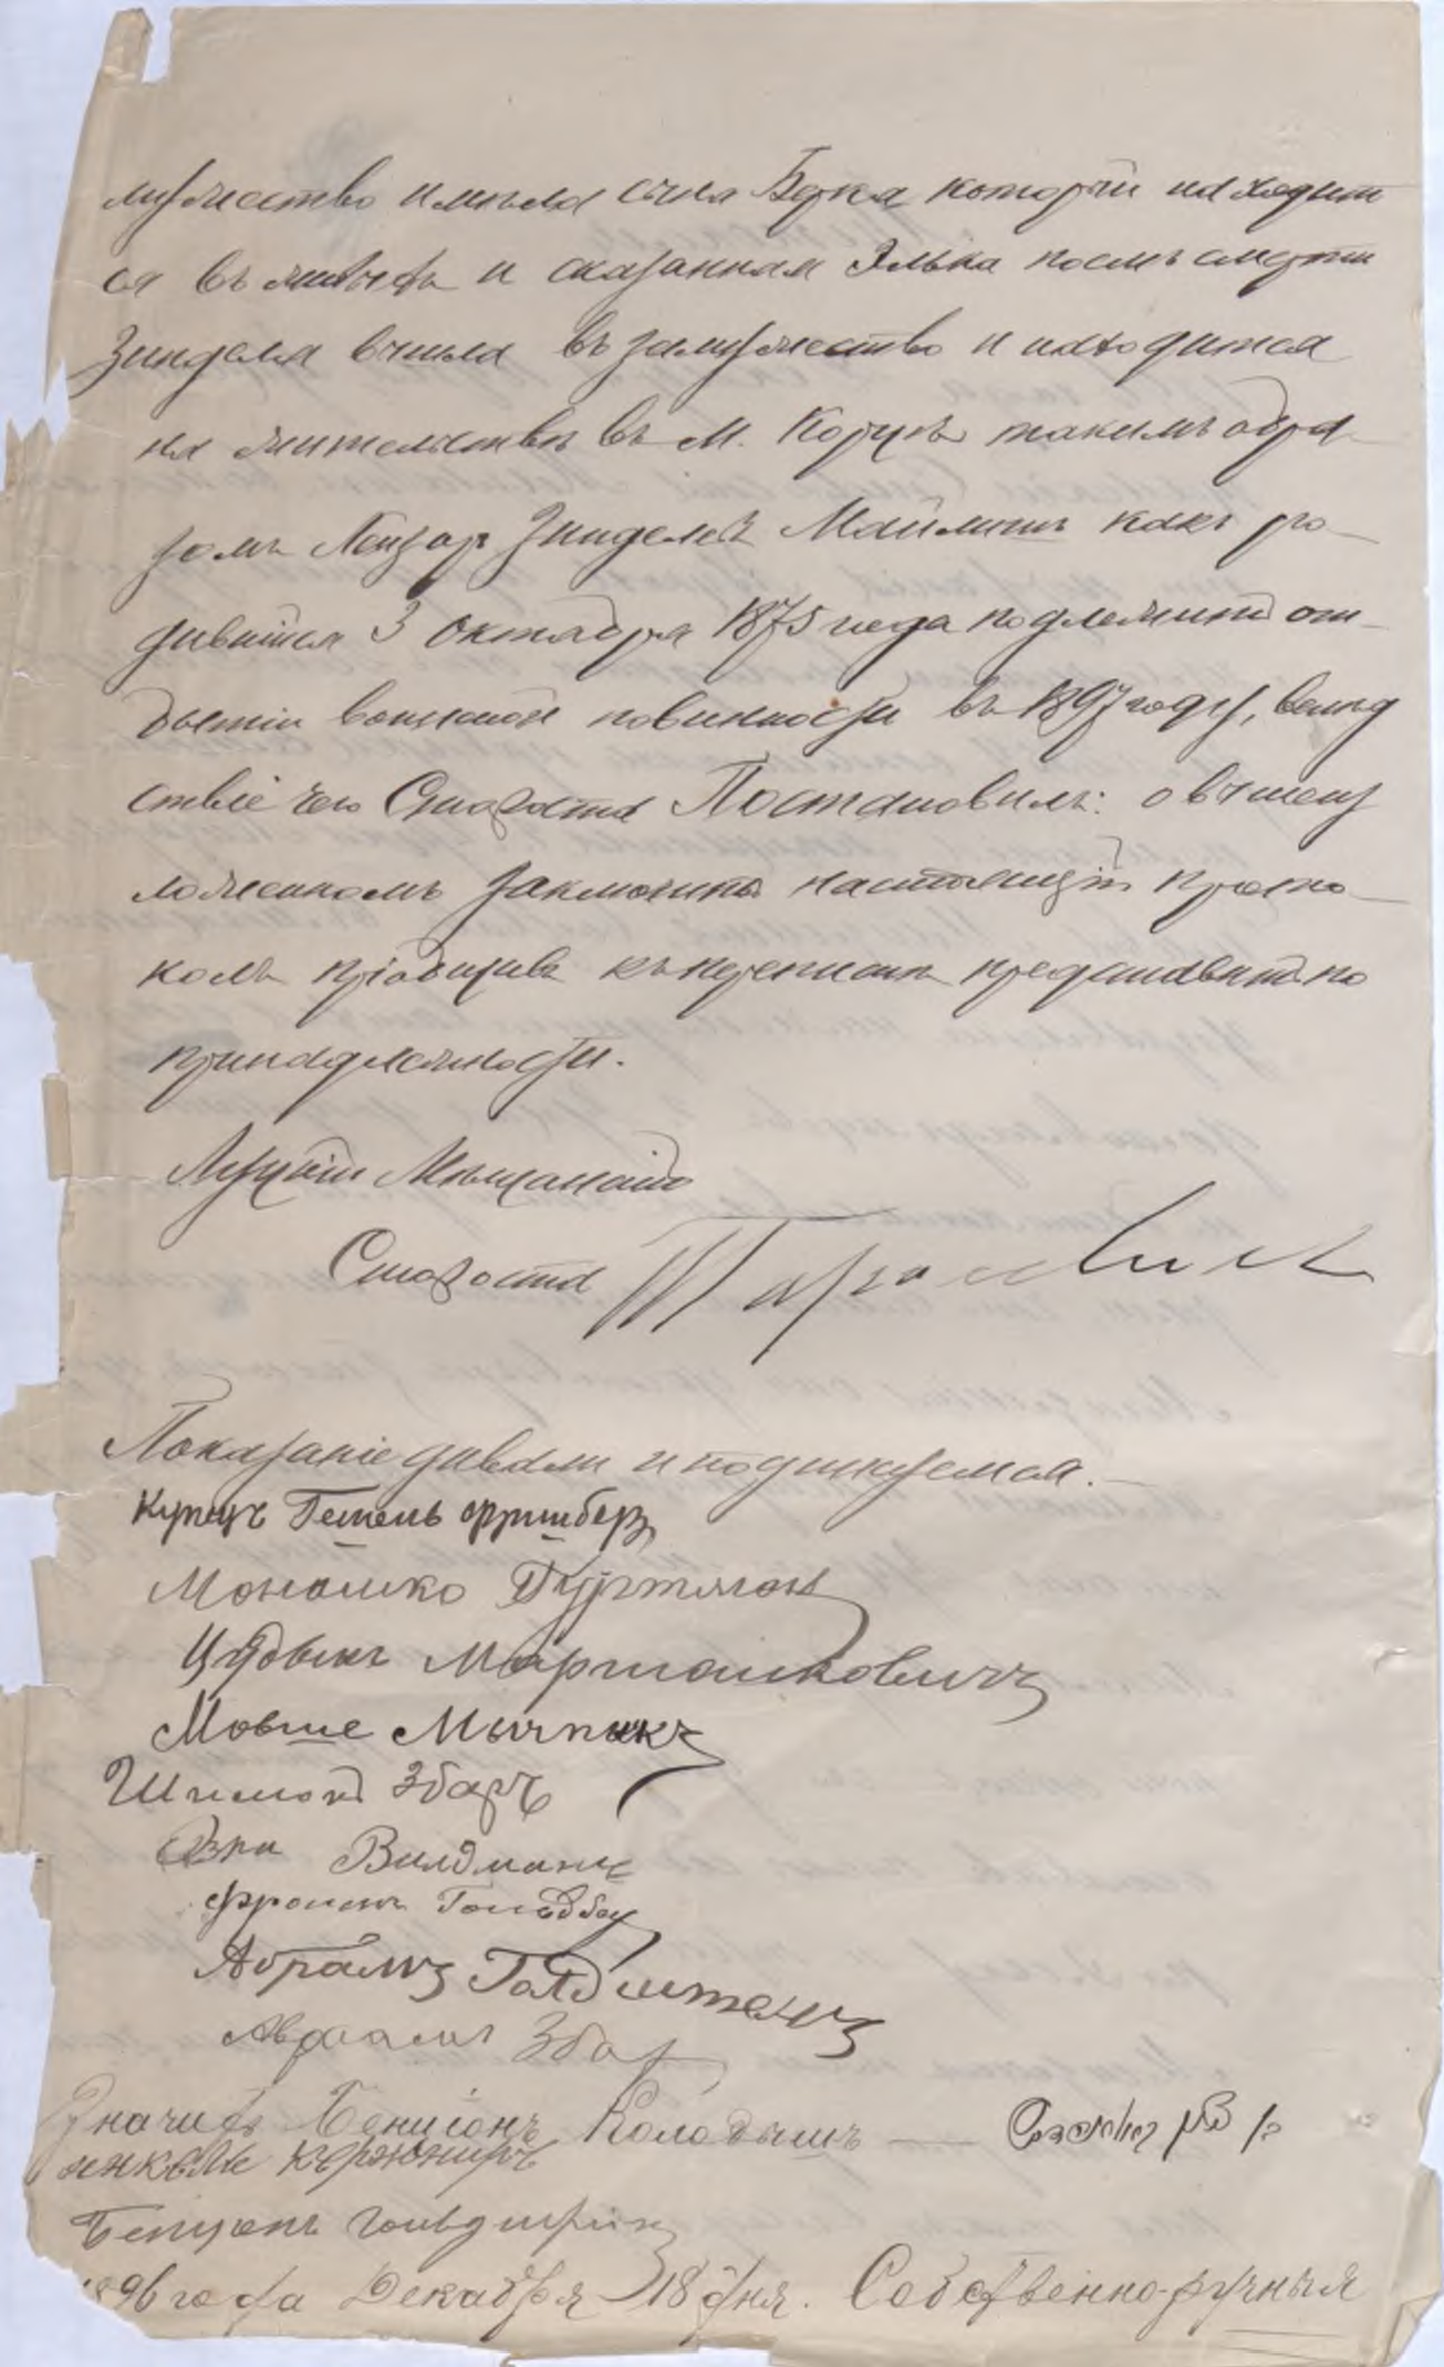 мужество имѣла сына Берка который находит
ся въ живыхъ и сказанная Элька послѣ смерти
Зинделя вышла въ замужество и находится
на жительствѣ въ М. Корцѣ такимъ обра-
зомъ Лейзоръ Зинделевъ Маймонъ какъ ро-
дившійся 3 Октября 1875 года подлежитъ от-
бытію воинской повинности въ 1897 году, вслѣд
ствіе чего Староста Постановилъ: о выше из
ложенномъ заключить настоящій прото-
колъ пріобщивъ къ перепискѣ представить по
принадлежности.
Луцкій Мѣщанскій
Староста
Показаніе давали и подпишемся.—
Купецъ Гешель Фришбергъ
Мошко Гуртман
Мартошковичъ
Мовше Мычникъ
Шимонъ Збаръ
Вилдманъ
Фроимъ Гольдбе
Абрамъ Голдштенъ
Авраамъ Збар
Значитъ Бенционъ Колодышъ —
Янкель Кержниръ
Бенционъ
1896 года Декабря 18 дня. Собственно-ручныя